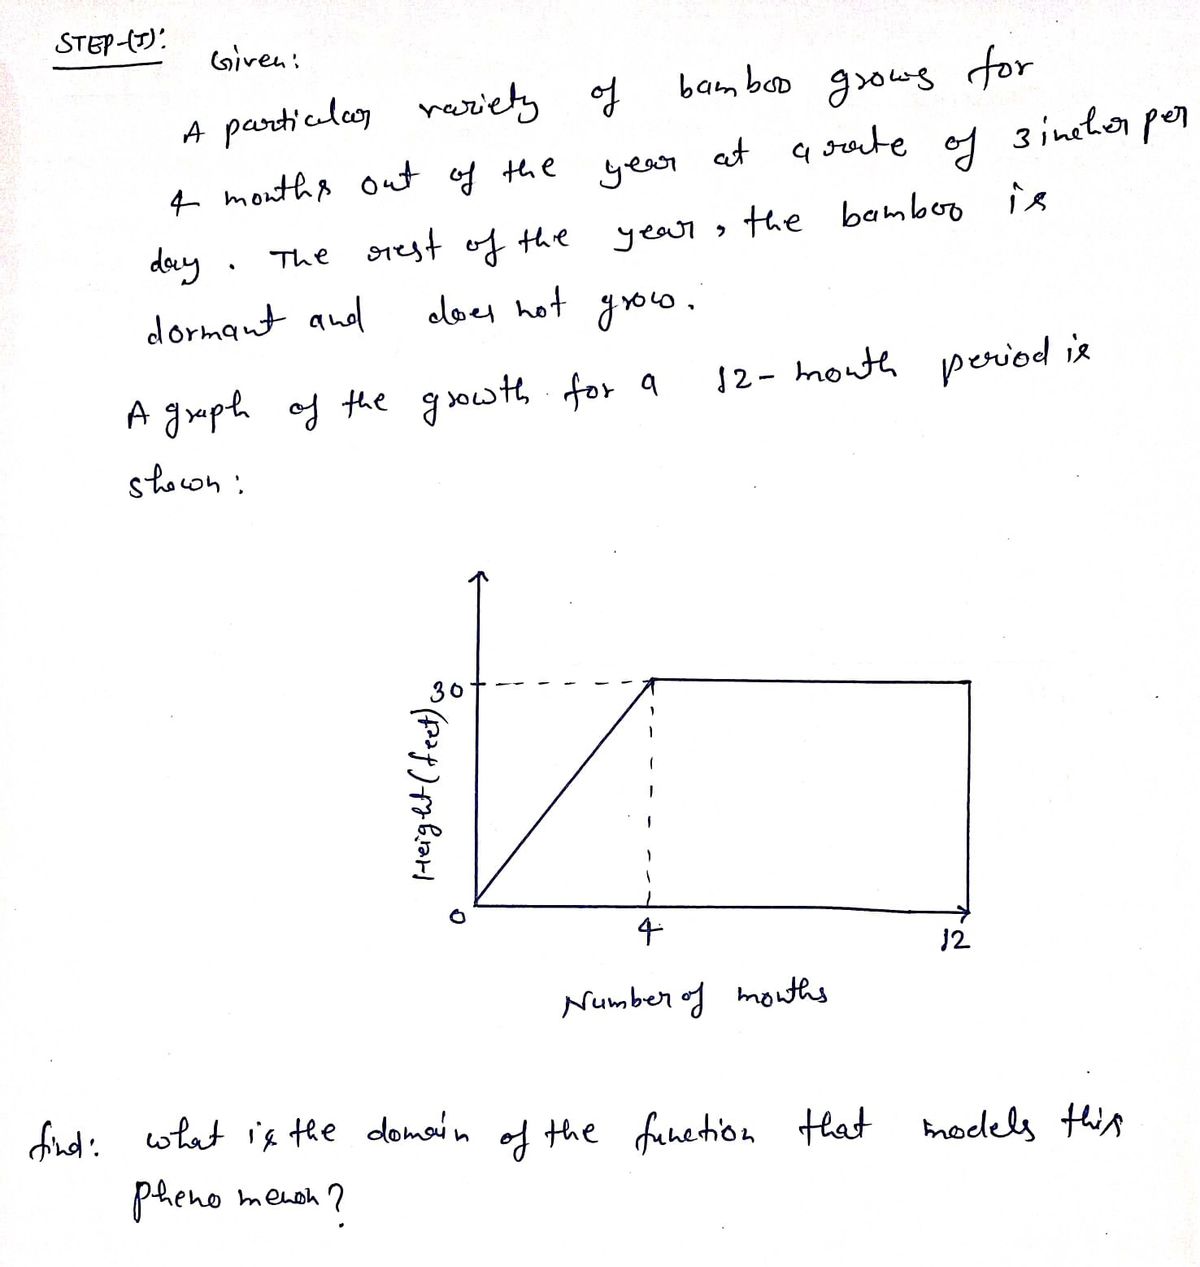 STEP-(I):
Given:
A particular variety of bamboo grows for
4 months out of the year at a rate of 3 inches per
day. The rest of the year, the bamboo is
dormant and does not grow.
A graph of the growth for a 12-month period is
shown:
30
Height (feet)
0
4
12
Number of months
find: what is the domain of the function that models this
phenomenon?